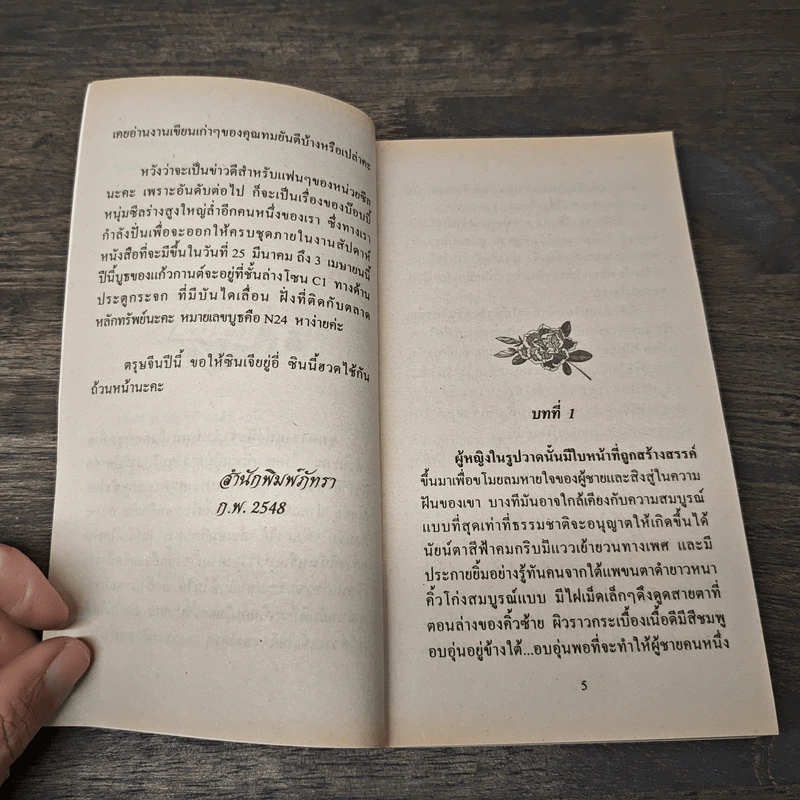 เคยอ่านงานเขียนเก่าๆของคุณทมยันตีบ้างหรือเปล่าคะ
หวังว่าจะเป็นข่าวดีสำหรับแฟนๆของหน่วยซีล
นะคะ เพราะอันดับต่อไป ก็จะเป็นเรื่องของบ๊อบบี้
หนุ่มซีลร่างสูงใหญ่ล่ำอีกคนหนึ่งของเรา ซึ่งทางเรา
กำลังปั่นเพื่อจะออกให้ครบชุดภายในงานสัปดาห์
หนังสือที่จะมีขึ้นในวันที่ 25 มีนาคม ถึง 3 เมษายนนี้
ปีนี้บูธของแก้วกานต์จะอยู่ที่ชั้นล่างโซน C1 ทางด้าน
ประตูกระจก ที่มีบันไดเลื่อน ฝั่งที่ติดกับตลาด
หลักทรัพย์นะคะ หมายเลขบูธคือ N24 หาง่ายค่ะ
ตรุษจีนปีนี้ ขอให้ซินเจียยู่อี่ ซินนี้ฮวดไช้กัน
ถ้วนหน้านะคะ
สำนักพิมพ์ภัทรา
ก.พ. 2548
บทที่ 1
ผู้หญิงในรูปวาดนั้นมีใบหน้าที่ถูกสร้างสรรค์
ขึ้นมาเพื่อขโมยลมหายใจของผู้ชายและสิงสู่ในความ
ฝันของเขา บางทีมันอาจใกล้เคียงกับความสมบูรณ์
แบบที่สุดเท่าที่ธรรมชาติจะอนุญาตให้เกิดขึ้นได้
นัยน์ตาสีฟ้าคมกริบมีแววเย้ายวนทางเพศ และมี
ประกายยิ้มอย่างรู้ทันคนจากใต้แพขนตาดำยาวหนา
คิ้วโก่งสมบูรณ์แบบ มีไฝเม็ดเล็กๆดึงดูดสายตาที่
ตอนล่างของคิ้วซ้าย ผิวราวกระเบื้องเนื้อดีมีสีชมพู
อบอุ่นอยู่ข้างใต้...อบอุ่นพอที่จะทำให้ผู้ชายคนหนึ่ง
5